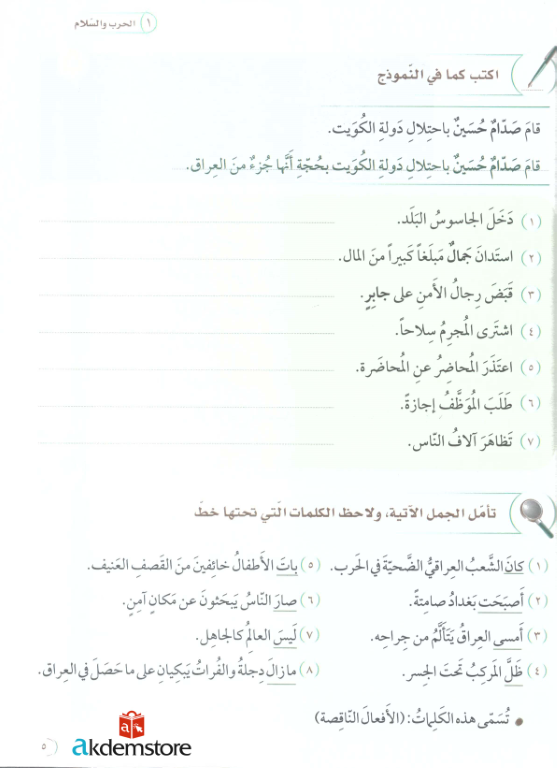 ١ الحرب والسّلام
اكتب كما في النّموذج
قامَ صَدّامُ حُسَينٌ باحتِلالِ دَولةِ الكُوَيت.
قامَ صَدّامُ حُسَينٌ باحتِلالِ دَولةِ الكُوَيت بحُجّةِ أَنَّها جُزءٌ منَ العِراق.
(١) دَخَلَ الجاسوسُ البَلَد.
(٢) استَدانَ جَمالٌ مَبلَغاً كَبيراً منَ المال.
(٣) قَبَضَ رِجالُ الأَمنِ على جابِرٍ.
(٤) اشتَرى المُجرِمُ سِلاحاً.
(٥) اعتَذَرَ المُحاضِرُ عنِ المُحاضَرة.
(٦) طَلَبَ المُوَظَّفُ إجازةً.
(٧) تَظاهَرَ آلافُ النّاس.
تأمّل الجمل الآتية، ولاحظ الكلمات الّتي تحتها خطّ
(١) كانَ الشَّعبُ العِراقيُّ الضَّحيّةَ في الحَرب.
(٢) أَصبَحَت بَغدادُ صامِتةً.
(٣) أَمسى العِراقُ يَتَأَلَّمُ من جِراحِه.
(٤) ظَلَّ المَركِبُ تَحتَ الجِسر.
(٥) باتَ الأَطفالُ خائِفينَ منَ القَصفِ العَنيف.
(٦) صارَ النّاسُ يَبحَثونَ عن مَكانٍ آمِنٍ.
(٧) لَيسَ العالِمُ كالجاهِل.
(٨) مازالَ دِجلةُ والفُراتُ يَبكيانِ على ما حَصَلَ في العِراق.
• تُسَمّى هذه الكَلِماتُ: (الأَفعالَ النّاقِصة)
akdemstore
٥